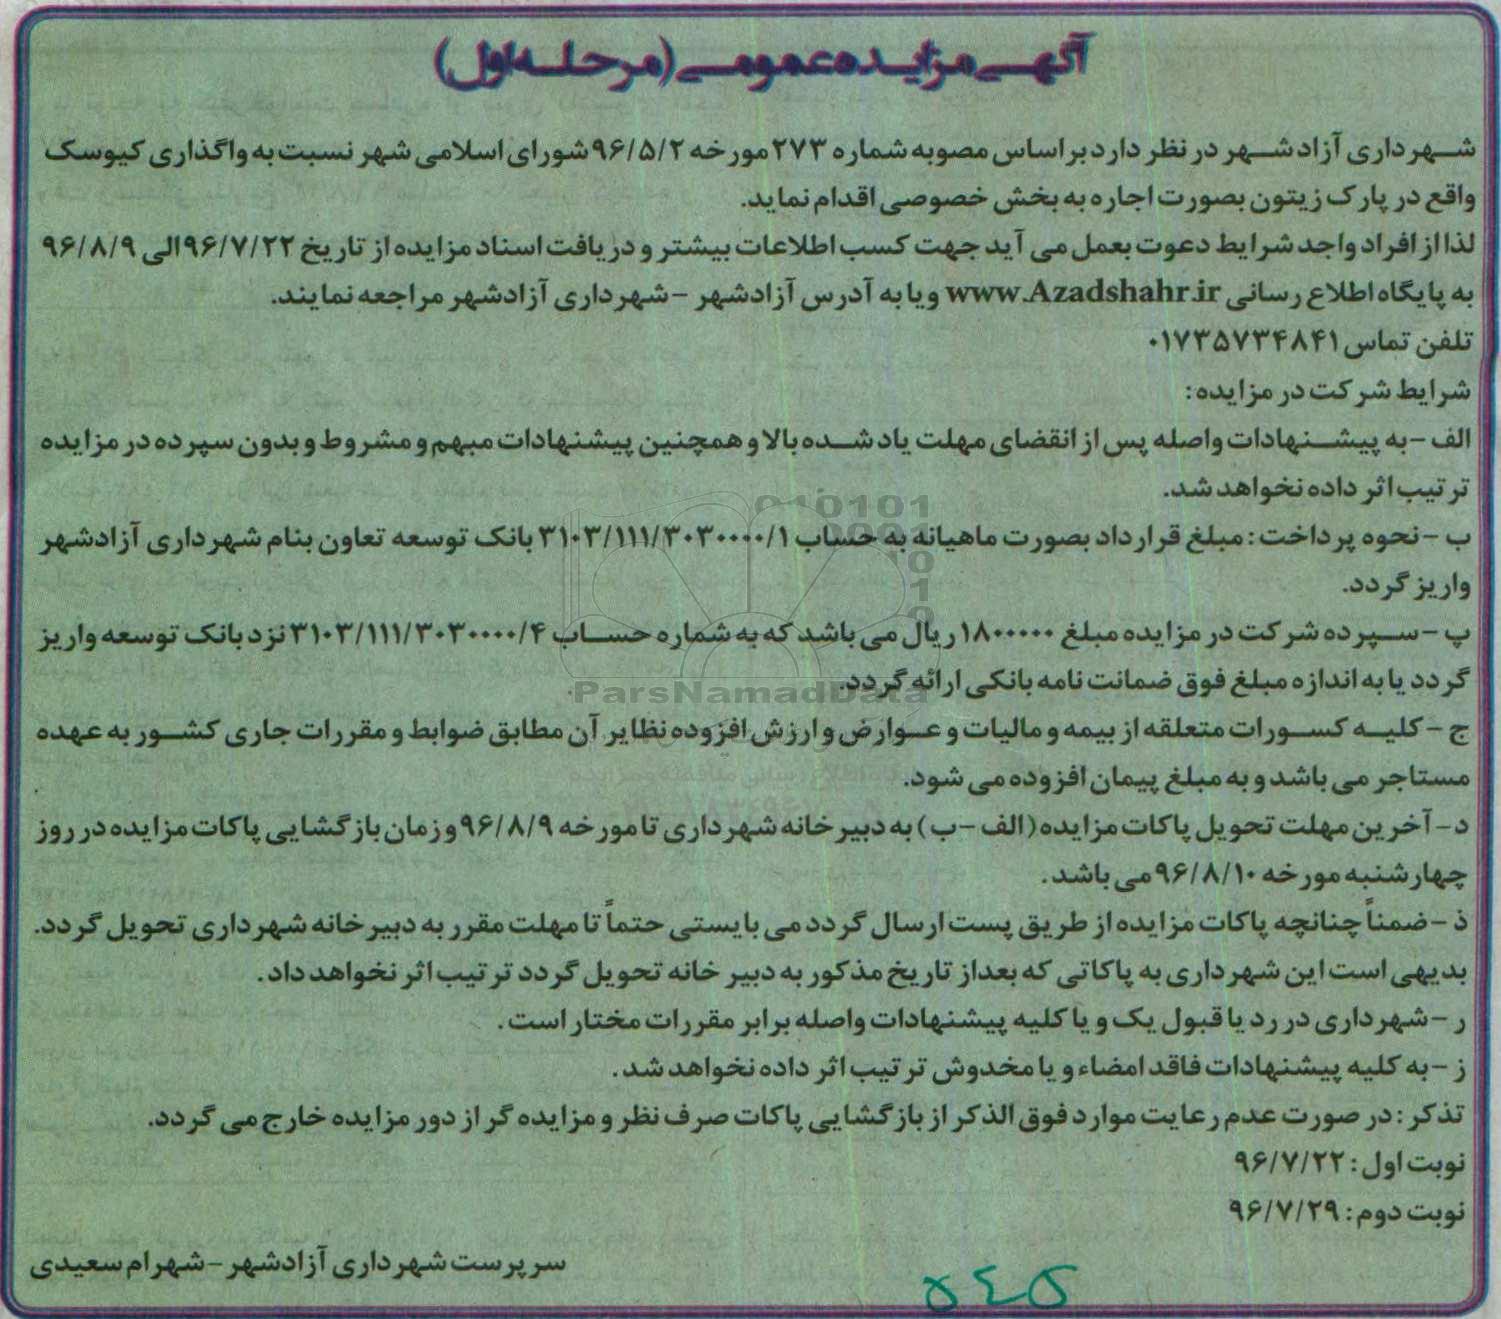 آگهی مزایده عمومی (مرحله اول)
شهرداری آزادشهر در نظر دارد براساس مصوبه شماره ۲۷۳ مورخه ۹۶/۵/۲ شورای اسلامی شهر نسبت به واگذاری کیوسک
واقع در پارک زیتون بصورت اجاره به بخش خصوصی اقدام نماید.
لذا از افراد واجد شرایط دعوت بعمل می آید جهت کسب اطلاعات بیشتر و دریافت اسناد مزایده از تاریخ ۹۶/۷/۲۲ الی ۹۶/۸/۹
به پایگاه اطلاع رسانی www.Azadshahr.ir و یا به آدرس آزادشهر - شهرداری آزادشهر مراجعه نمایند.
تلفن تماس ۰۱۷۳۵۷۳۴۸۴۱
شرایط شرکت در مزایده:
الف - به پیشنهادات واصله پس از انقضای مهلت یاد شده بالا و همچنین پیشنهادات مبهم و مشروط و بدون سپرده در مزایده
ترتیب اثر داده نخواهد شد.
ب - نحوه پرداخت: مبلغ قرارداد بصورت ماهیانه به حساب ۳۱۰۳/۱۱۱/۳۰۳۰۰۰۰/۱ بانک توسعه تعاون بنام شهرداری آزادشهر
واریز گردد.
پ - سپرده شرکت در مزایده مبلغ ۱۸۰۰۰۰۰ ریال می باشد که به شماره حساب ۳۱۰۳/۱۱۱/۳۰۳۰۰۰۰/۴ نزد بانک توسعه واریز
گردد یا به اندازه مبلغ فوق ضمانت نامه بانکی ارائه گردد.
ج - کلیه کسورات متعلقه از بیمه و مالیات و عوارض و ارزش افزوده نظایر آن مطابق ضوابط و مقررات جاری کشور به عهده
مستاجر می باشد و به مبلغ پیمان افزوده می شود.
د - آخرین مهلت تحویل پاکات مزایده (الف - ب) به دبیرخانه شهرداری تا مورخه ۹۶/۸/۹ و زمان بازگشایی پاکات مزایده در روز
چهارشنبه مورخه ۹۶/۸/۱۰ می باشد.
ذ - ضمناً چنانچه پاکات مزایده از طریق پست ارسال گردد می بایستی حتماً تا مهلت مقرر به دبیرخانه شهرداری تحویل گردد.
بدیهی است این شهرداری به پاکاتی که بعداز تاریخ مذکور به دبیر خانه تحویل گردد ترتیب اثر نخواهد داد.
ر - شهرداری در رد یا قبول یک و یا کلیه پیشنهادات واصله برابر مقررات مختار است.
ز - به کلیه پیشنهادات فاقد امضاء و یا مخدوش ترتیب اثر داده نخواهد شد.
تذکر: در صورت عدم رعایت موارد فوق الذکر از بازگشایی پاکات صرف نظر و مزایده گر از دور مزایده خارج می گردد.
نوبت اول: ۹۶/۷/۲۲
نوبت دوم: ۹۶/۷/۲۹
سرپرست شهرداری آزادشهر - شهرام سعیدی
ParsNamadData